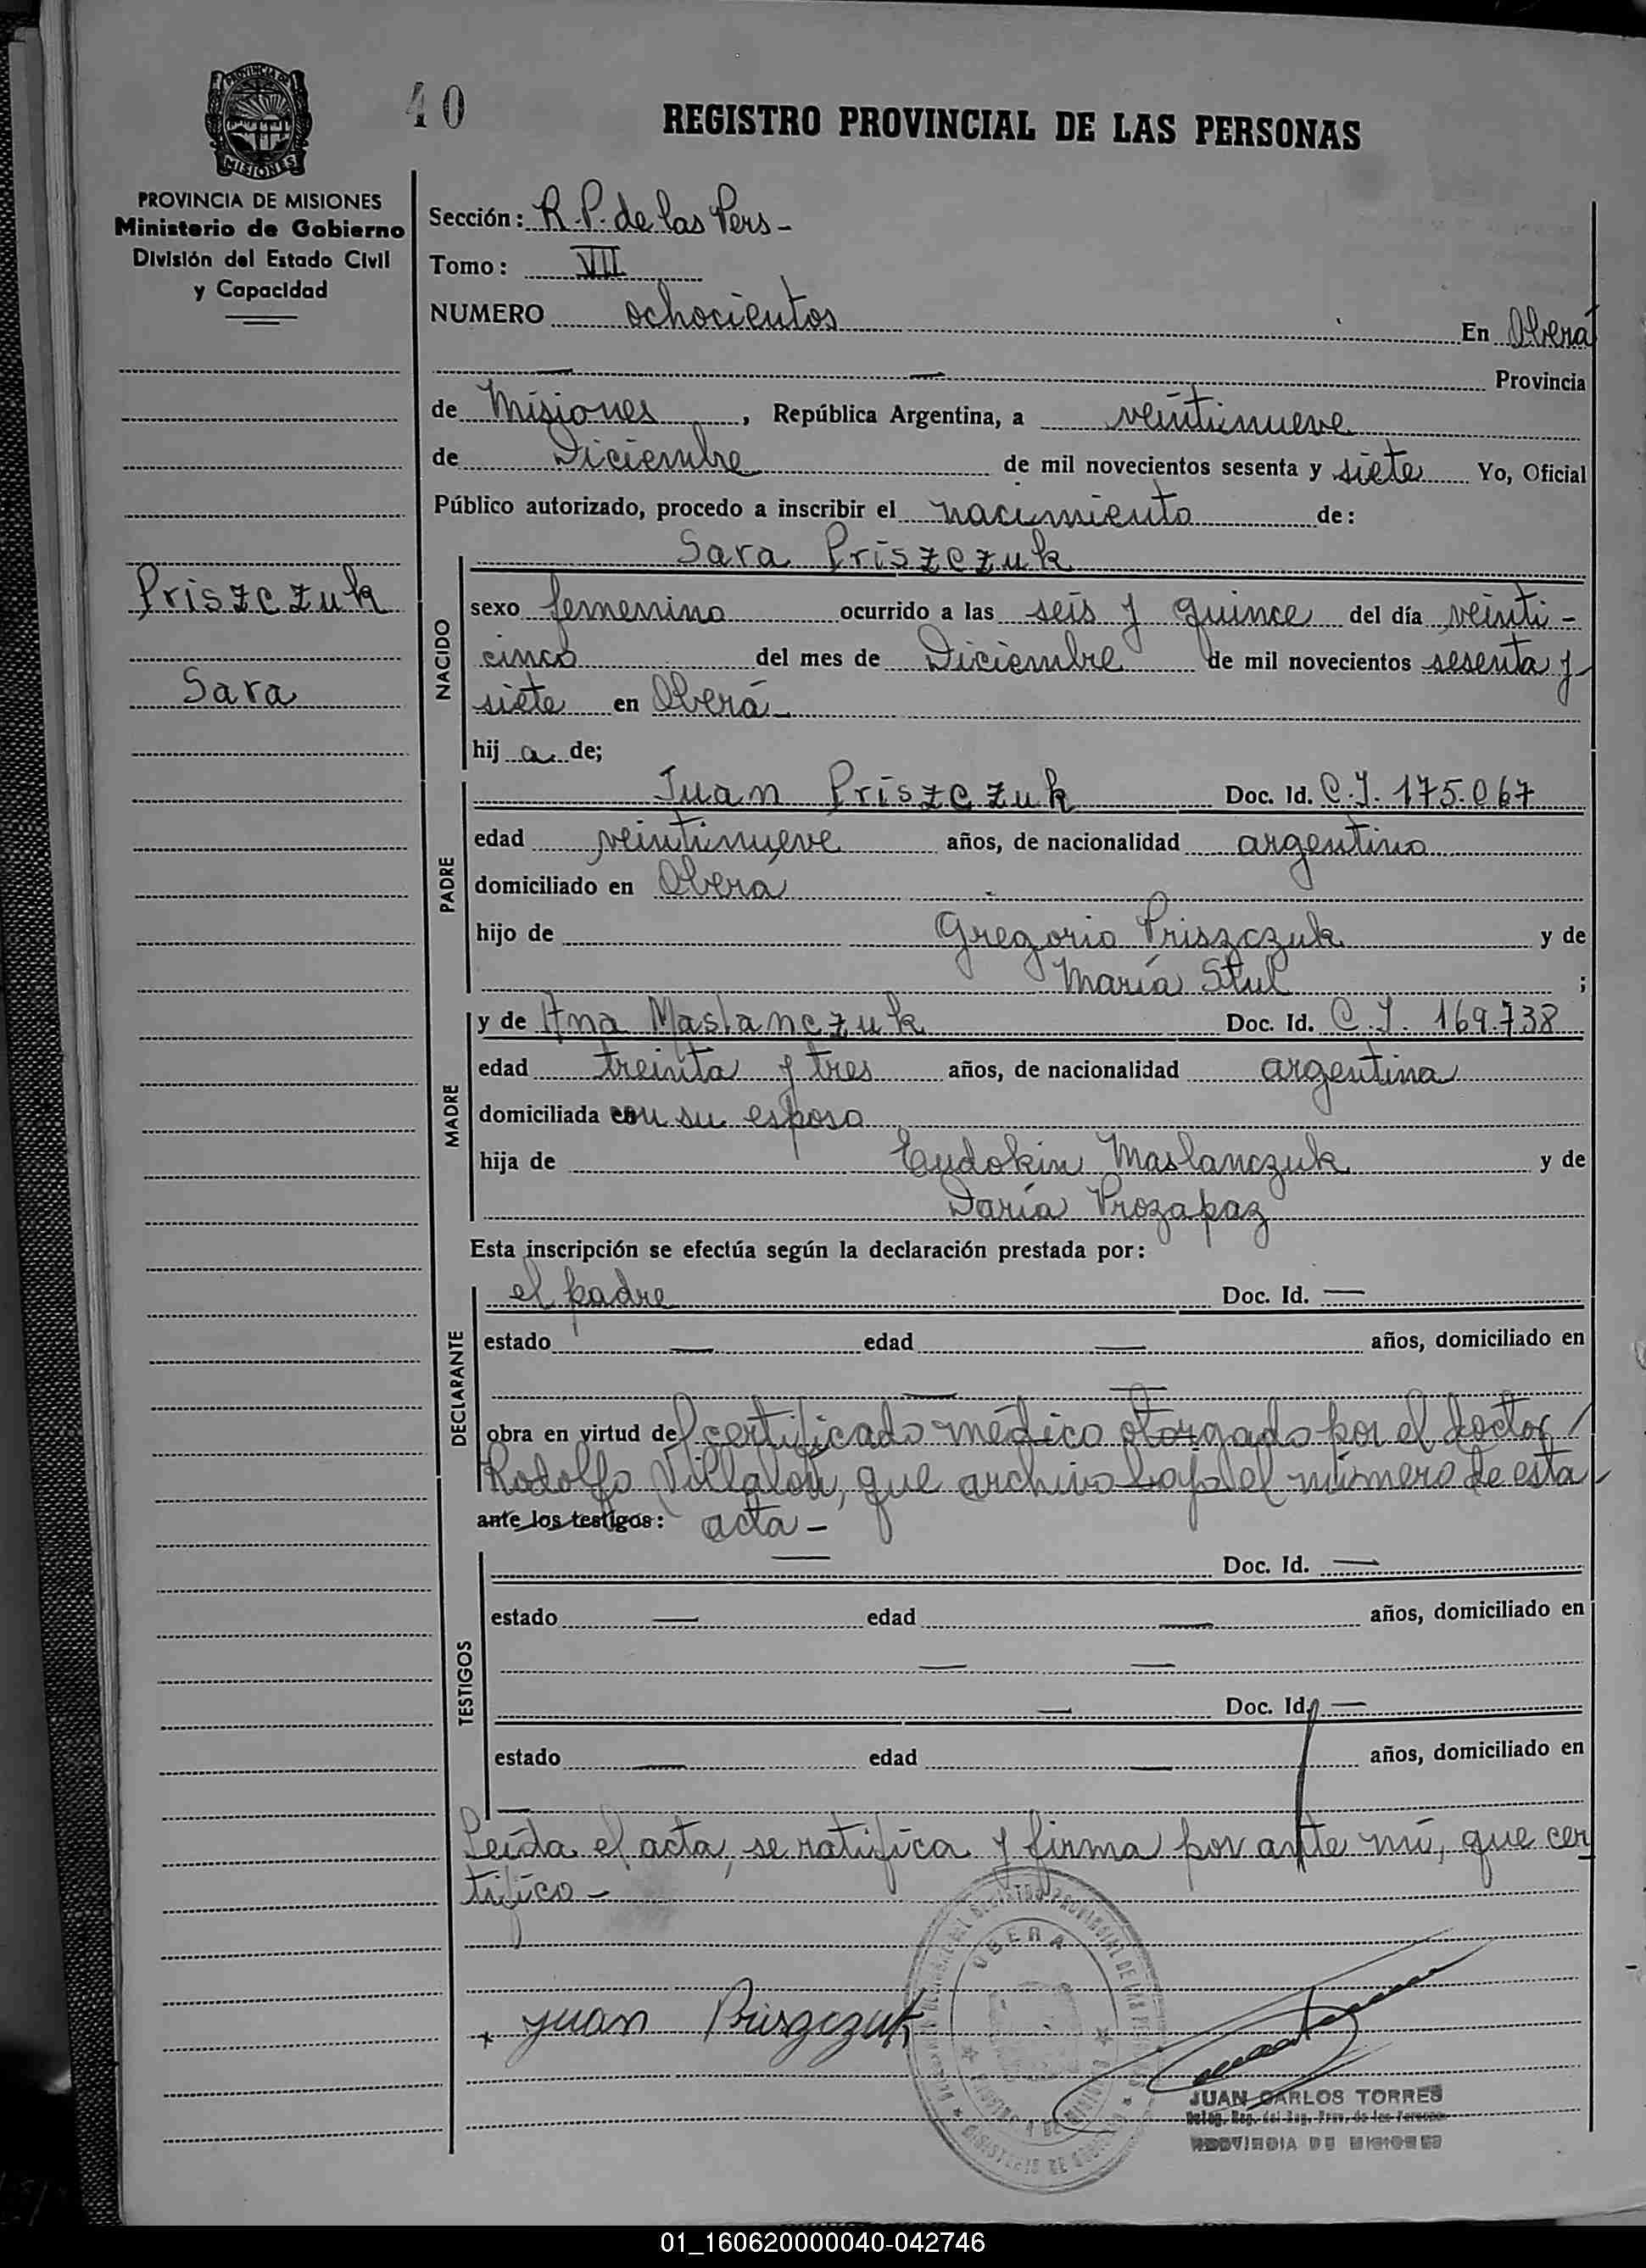 40
REGISTRO PROVINCIAL DE LAS PERSONAS
PROVINCIA DE
MISIONES
PROVINCIA DE MISIONES
Ministerio de Gobierno
División del Estado Civil
y Capacidad
Sección: R.P. de las Pers-
Tomo: VII
NUMERO ochocientos En Oberá
Provincia
de Misiones, República Argentina, a veintinueve
de Diciembre de mil novecientos sesenta y siete Yo, Oficial
Público autorizado, procedo a inscribir el nacimiento de:
Priszczuk
Sara
NACIDO
Sara Priszczuk
sexo femenino ocurrido a las seis y quince del día veinti-
cinco del mes de Diciembre de mil novecientos sesenta y
siete en Oberá-
hij a de;
PADRE
Juan Priszczuk Doc. Id. C.I. 175.067
edad veintinueve años, de nacionalidad argentina
domiciliado en Oberá
hijo de Gregorio Priszczuk y de
María Stul ;
MADRE
y de Ana Maslanczuk Doc. Id. C.I. 169.738
edad treinta y tres años, de nacionalidad argentina
domiciliada con su esposo
hija de Eudokin Maslanczuk y de
Daría Prozapaz
Esta inscripción se efectúa según la declaración prestada por:
DECLARANTE
el padre Doc. Id. —
estado — edad — años, domiciliado en
— —
obra en virtud del certificado médico otorgado por el doctor /
Rodolfo Villalon, que archivo bajo el número de esta
ante los testigos: acta-
TESTIGOS
— Doc. Id. —
estado — edad — años, domiciliado en
— —
— Doc. Id. —
estado — edad — años, domiciliado en
—
Leída el acta, se ratifica y firma por ante mí, que cer
tifico-
OBERA
Juan Priszczuk
JUAN CARLOS TORRES
Deleg. Reg. del Reg. Prov. de las Personas
PROVINCIA DE MISIONES
01_160620000040-042746